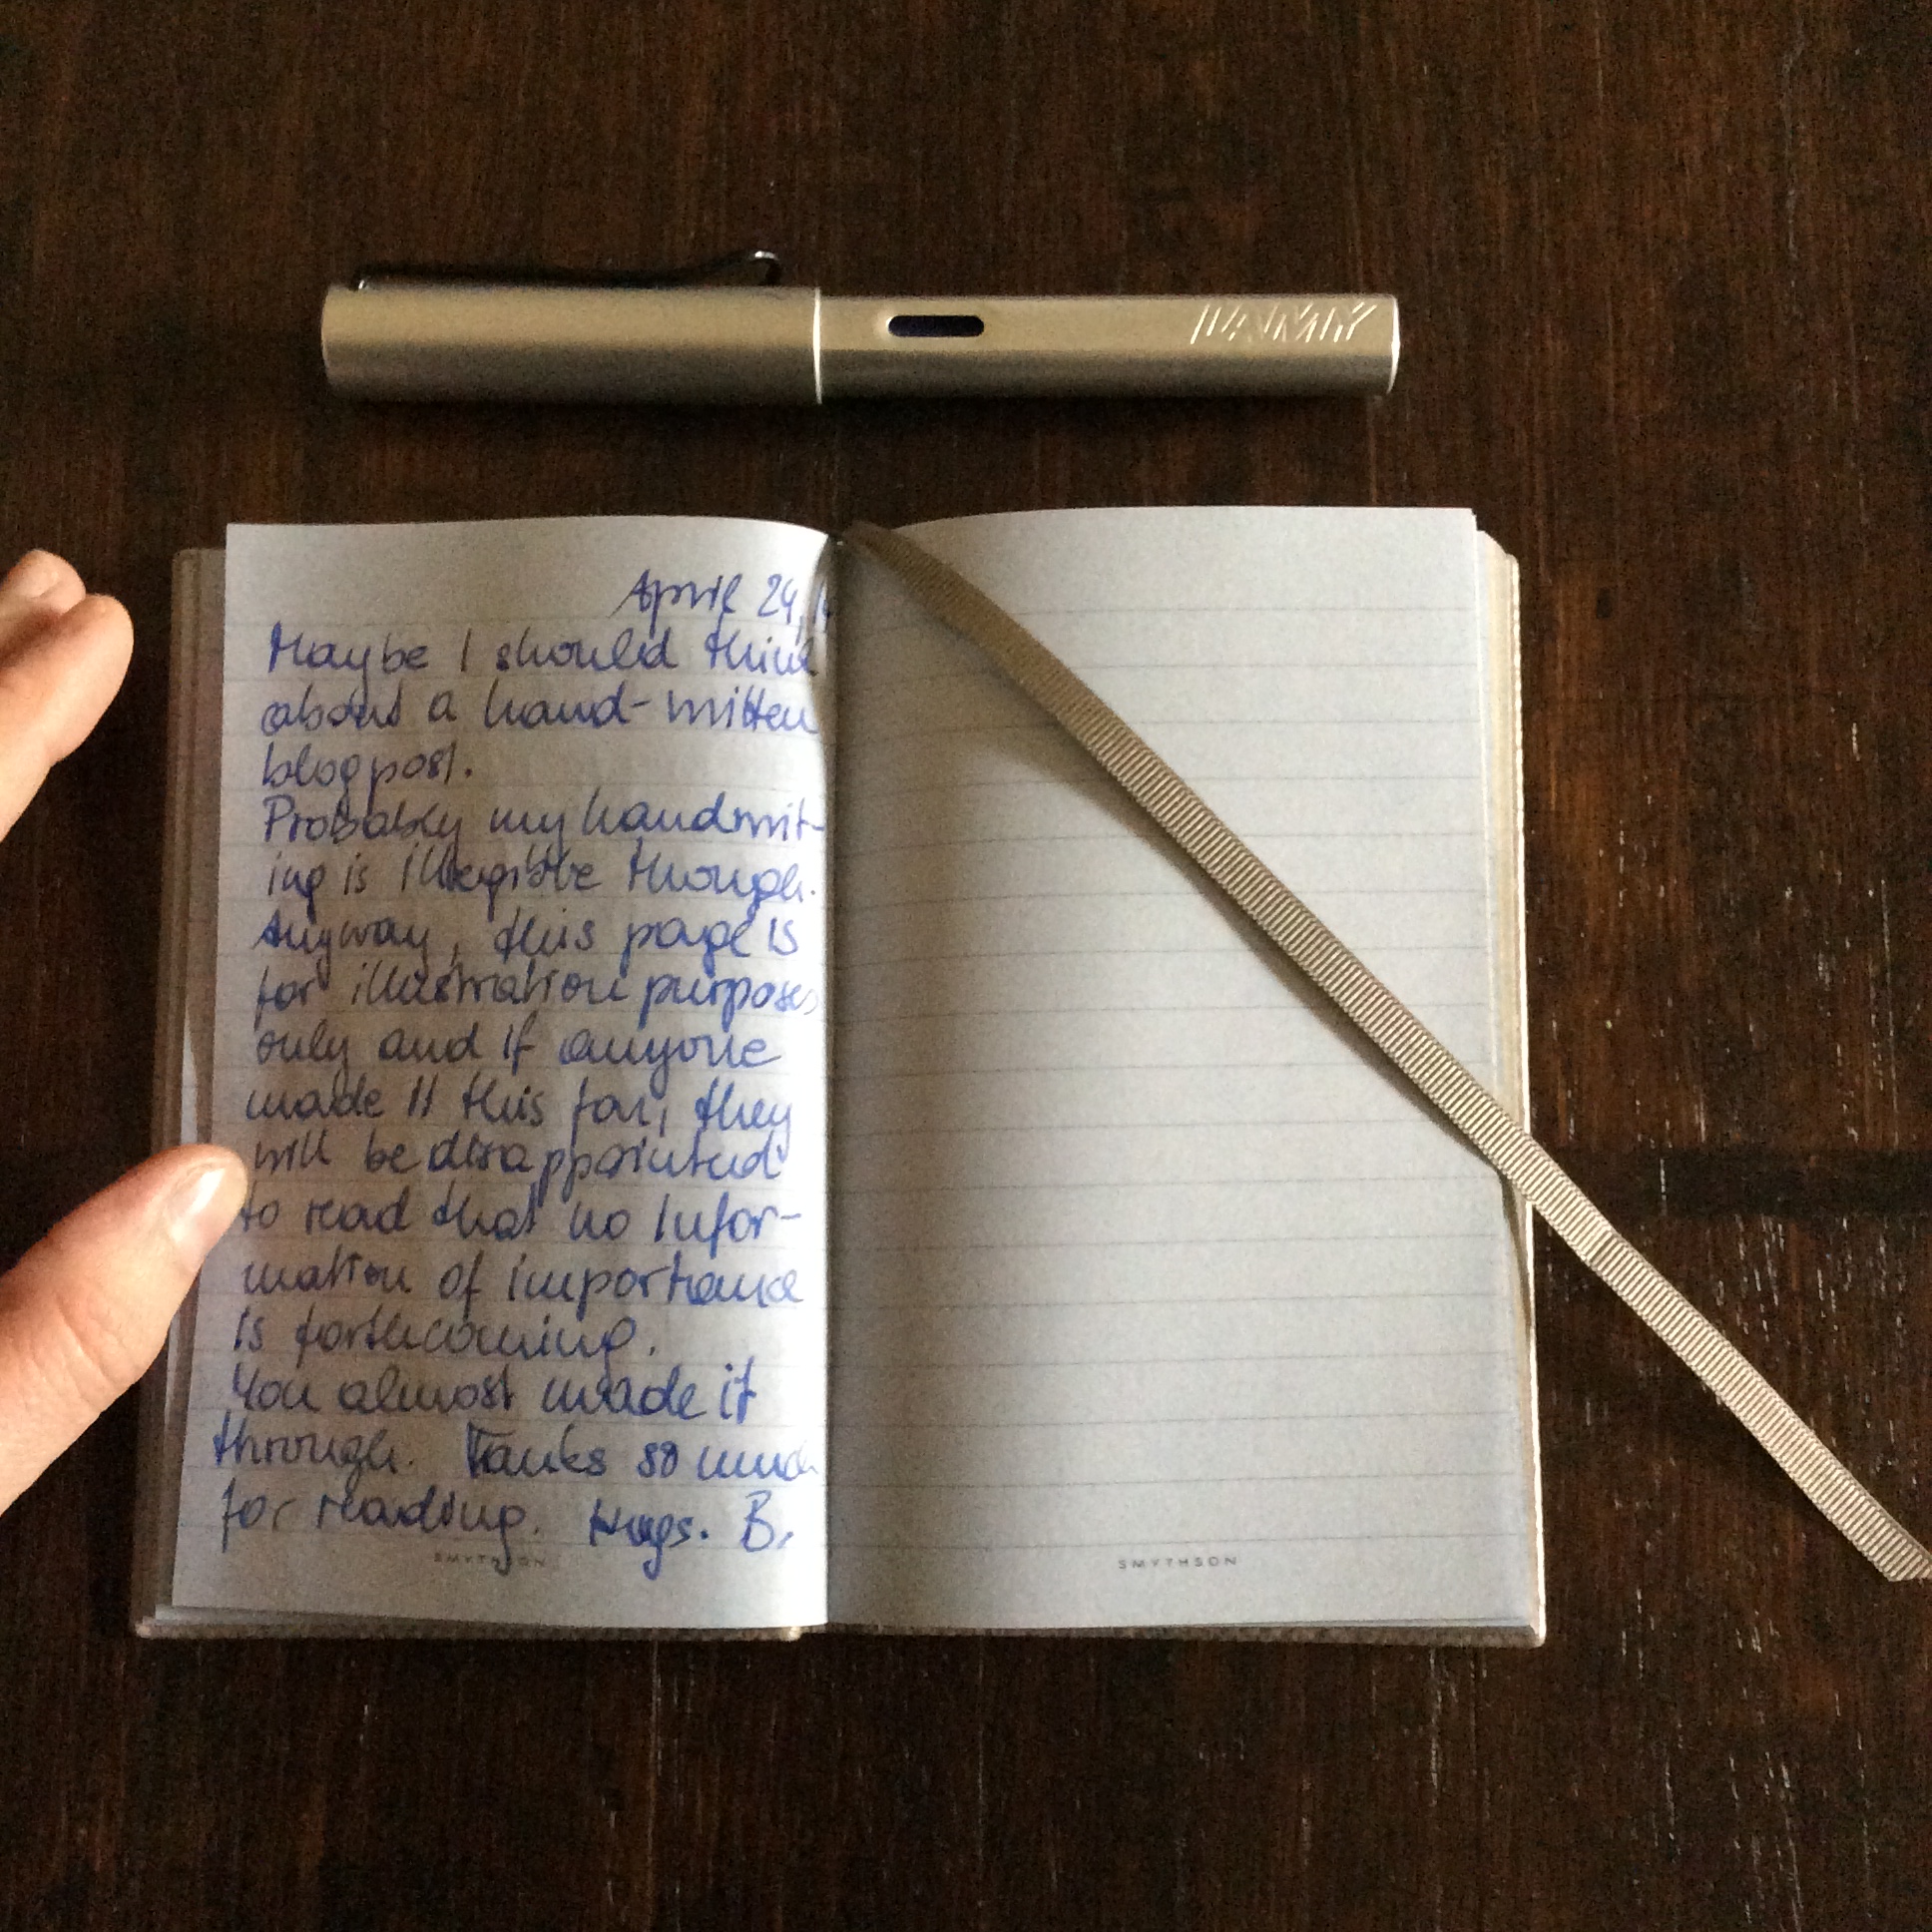 LAMY
April 24,
Maybe I should think
about a hand-written
blogpost.
Probably my handwrit-
ing is illegible though.
Anyway, this page is
for illustration purposes
only and if anyone
made it this far, they
will be disappointed
to read that no infor-
mation of importance
is forthcoming.
You almost made it
through. Tanks so much
for reading. Hugs. B.
SMYTHSON
SMYTHSON